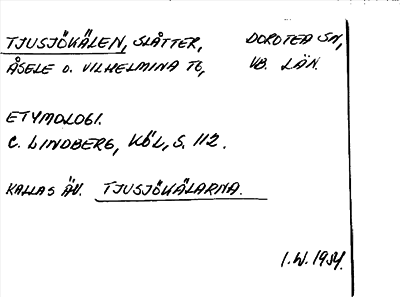 TJUSJÖKÄLEN, SLÅTTER, DOROTEA SN,
ÅSELE O. VILHELMINA TG, VB. LÄN.
ETYMOLOGI.
C. LINDBERG, KÖL, S. 112.
KALLAS ÄV. TJUSJÖKÄLARNA.
I.W. 1954.